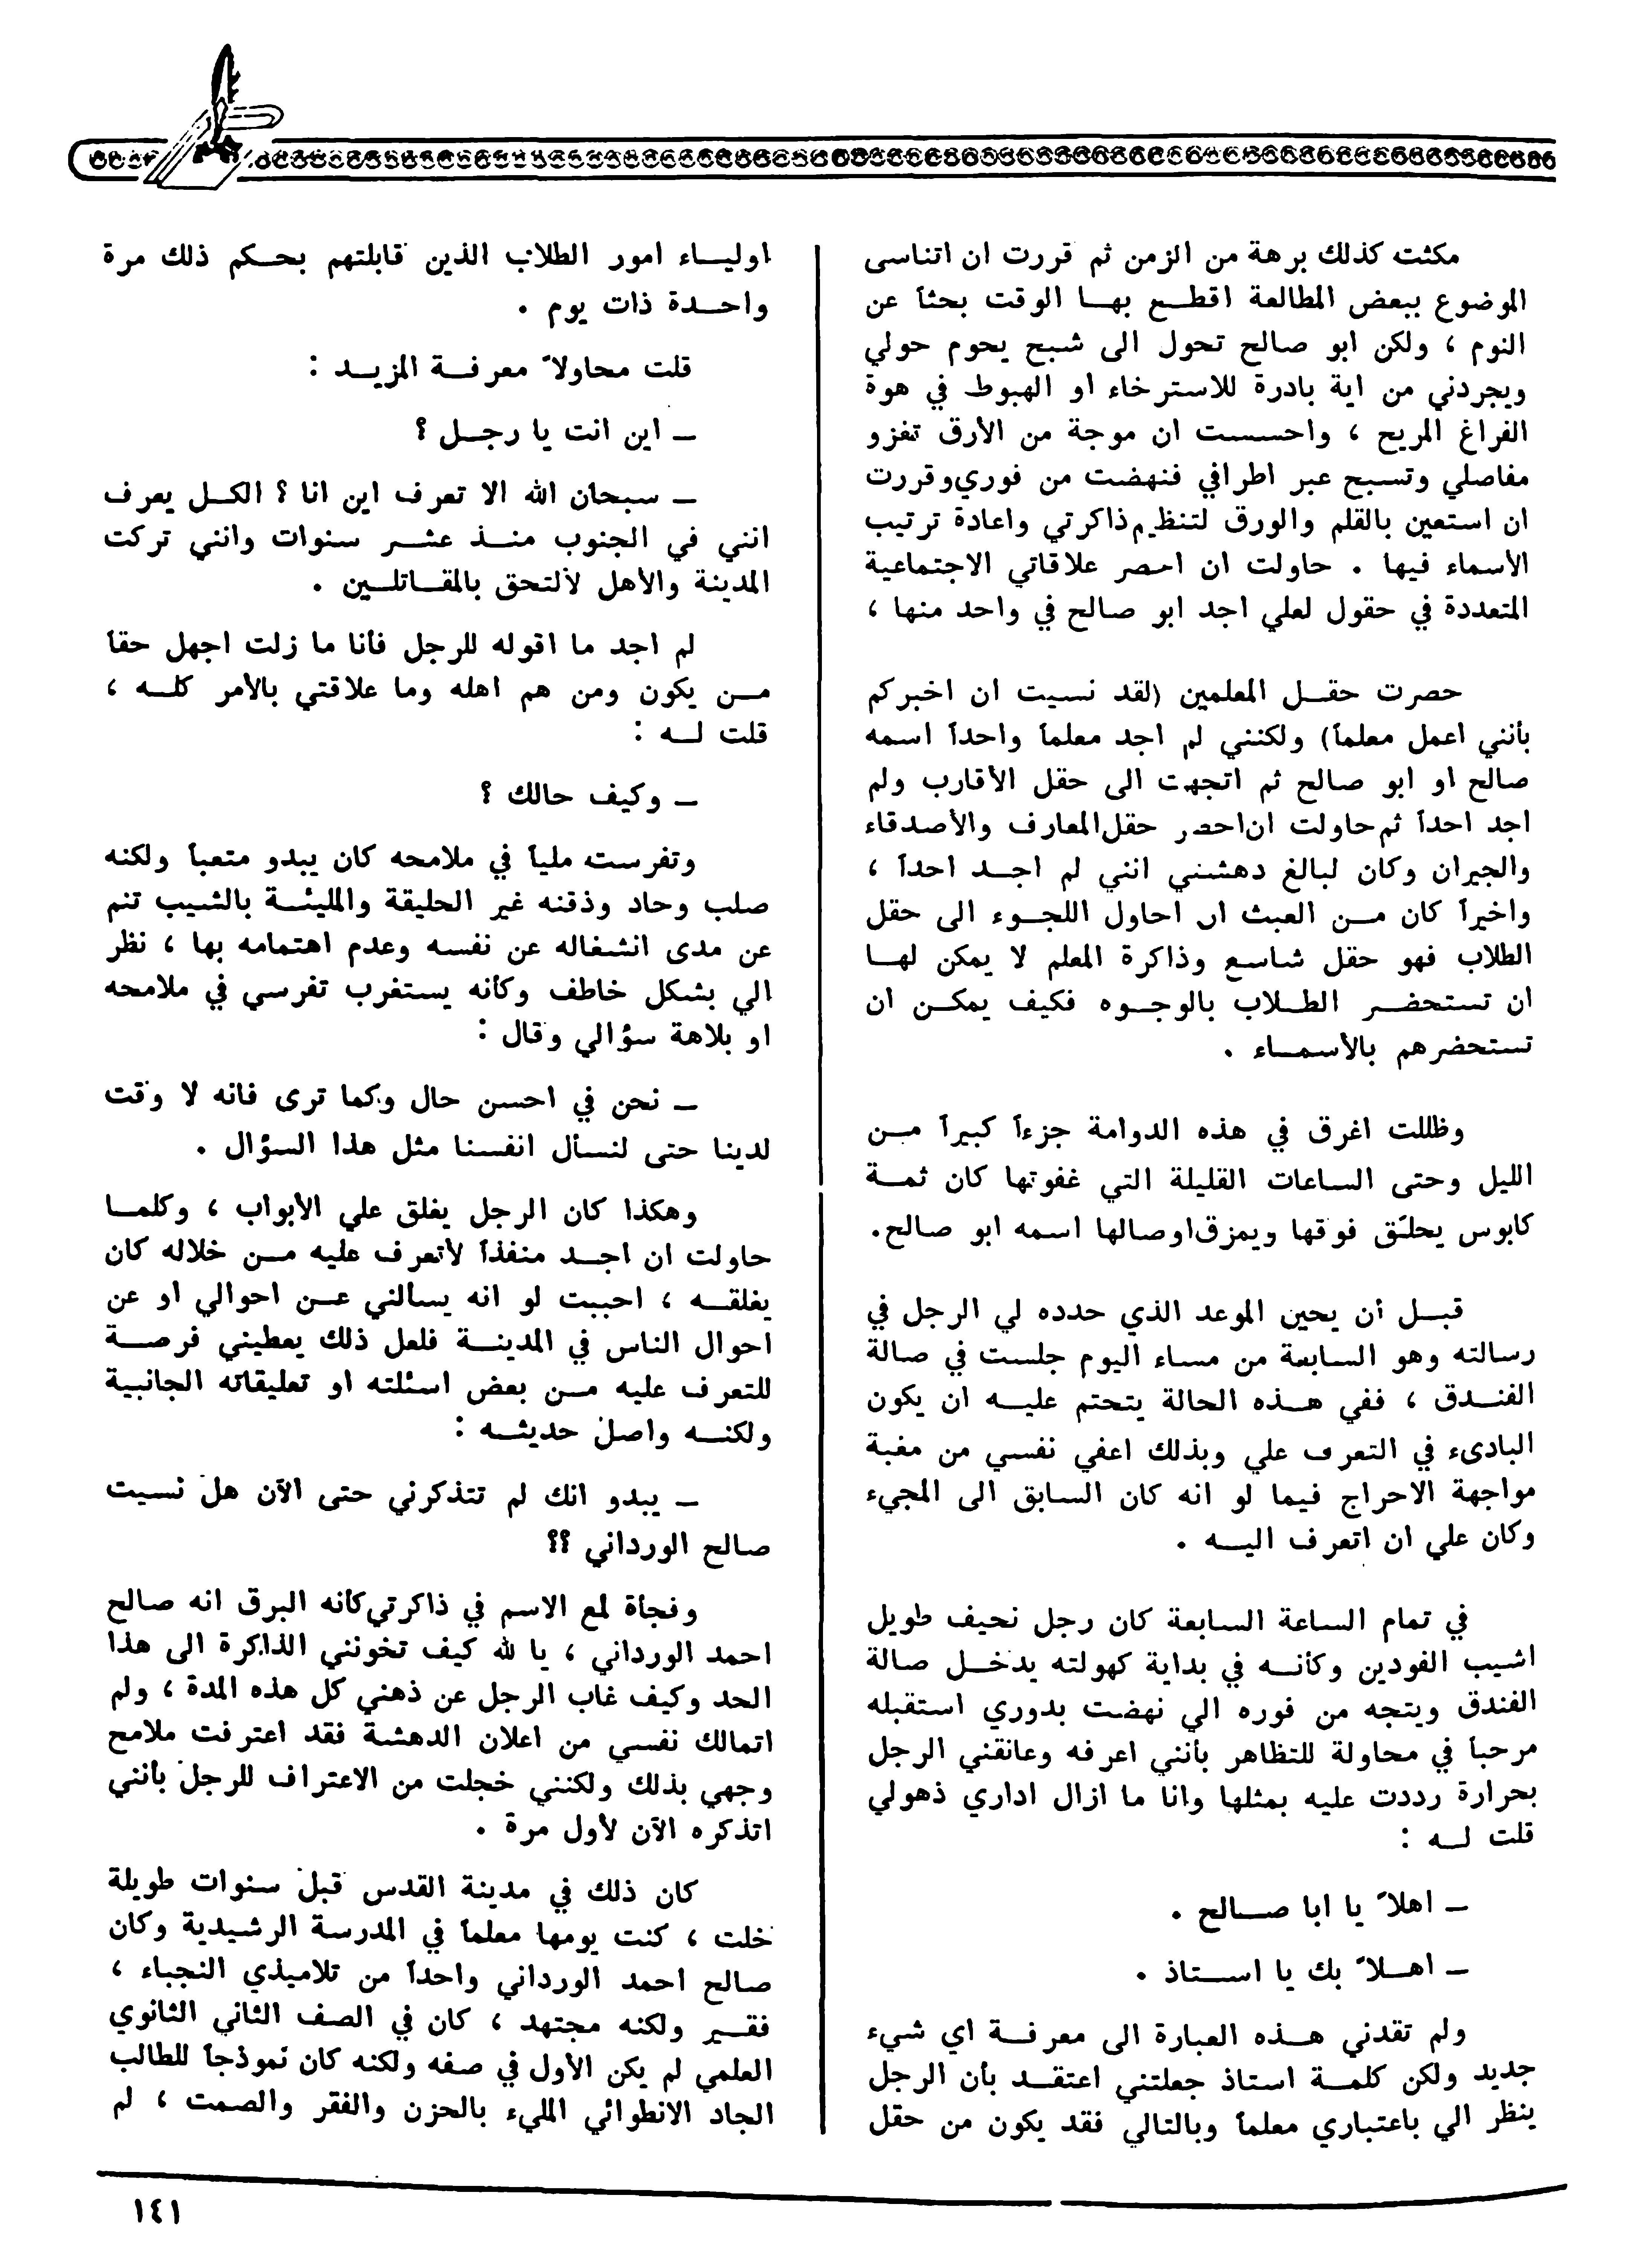 مكثت كذلك برهة من الزمن ثم قررت ان اتناسى
الموضوع ببعض المطالعة اقطع بها الوقت بحثاً عن
النوم ، ولكن ابو صالح تحول الى شبح يحوم حولي
ويجردني من اية بادرة للاسترخاء او الهبوط في هوة
الفراغ المريح ، واحسست ان موجة من الأرق تغزو
مفاصلي وتسبح عبر اطرافي فنهضت من فوري وقررت
ان استعين بالقلم والورق لتنظيم ذاكرتي واعادة ترتيب
الأسماء فيها . حاولت ان احصر علاقاتي الاجتماعية
المتعددة في حقول لعلي اجد ابو صالح في واحد منها ،
حصرت حقل المعلمين (لقد نسيت ان اخبركم
بأنني اعمل معلماً) ولكنني لم اجد معلماً واحداً اسمه
صالح او ابو صالح ثم اتجهت الى حقل الأقارب ولم
اجد احداً ثم حاولت ان احصر حقل المعارف والأصدقاء
والجيران وكان لبالغ دهشتي انني لم اجد احداً ،
واخيراً كان من العبث ان احاول اللجوء الى حقل
الطلاب فهو حقل شاسع وذاكرة المعلم لا يمكن لها
ان تستحضر الطلاب بالوجوه فكيف يمكن ان
تستحضرهم بالأسماء .
وظللت اغرق في هذه الدوامة جزءاً كبيراً من
الليل وحتى الساعات القليلة التي غفوتها كان ثمة
كابوس يحلّق فوقها ويمزق اوصالها اسمه ابو صالح.
قبل أن يحين الموعد الذي حدده لي الرجل في
رسالته وهو السابعة من مساء اليوم جلست في صالة
الفندق ، ففي هذه الحالة يتحتم عليه ان يكون
البادىء في التعرف علي وبذلك اعفي نفسي من مغبة
مواجهة الاحراج فيما لو انه كان السابق الى المجيء
وكان علي ان اتعرف اليه .
في تمام الساعة السابعة كان رجل نحيف طويل
اشيب الفودين وكأنه في بداية كهولته يدخل صالة
الفندق ويتجه من فوره الي نهضت بدوري استقبله
مرحباً في محاولة للتظاهر بأنني اعرفه وعانقني الرجل
بحرارة رددت عليه بمثلها وانا ما ازال اداري ذهولي
قلت له :
ــ اهلاً يا ابا صالح .
ــ اهلاً بك يا استاذ .
ولم تقدني هذه العبارة الى معرفة اي شيء
جديد ولكن كلمة استاذ جعلتني اعتقد بأن الرجل
ينظر الي باعتباري معلماً وبالتالي فقد يكون من حقل
اولياء امور الطلاب الذين قابلتهم بحكم ذلك مرة
واحدة ذات يوم .
قلت محاولاً معرفة المزيد :
ــ اين انت يا رجل ؟
ــ سبحان الله الا تعرف اين انا ؟ الكل يعرف
انني في الجنوب منذ عشر سنوات وانني تركت
المدينة والأهل لألتحق بالمقاتلين .
لم اجد ما اقوله للرجل فأنا ما زلت اجهل حقاً
من يكون ومن هم اهله وما علاقتي بالأمر كله ،
قلت له :
ــ وكيف حالك ؟
وتفرست ملياً في ملامحه كان يبدو متعباً ولكنه
صلب وحاد وذقنه غير الحليقة والمليئة بالشيب تنم
عن مدى انشغاله عن نفسه وعدم اهتمامه بها ، نظر
الي بشكل خاطف وكأنه يستغرب تفرسي في ملامحه
او بلاهة سؤالي وقال :
ــ نحن في احسن حال وكما ترى فانه لا وقت
لدينا حتى لنسأل انفسنا مثل هذا السؤال .
وهكذا كان الرجل يغلق علي الأبواب ، وكلما
حاولت ان اجد منفذاً لأتعرف عليه من خلاله كان
يغلقه ، احببت لو انه يسألني عن احوالي او عن
احوال الناس في المدينة فلعل ذلك يعطيني فرصة
للتعرف عليه من بعض اسئلته او تعليقاته الجانبية
ولكنه واصل حديثه :
ــ يبدو انك لم تتذكرني حتى الآن هل نسيت
صالح الورداني ؟؟
وفجأة لمع الاسم في ذاكرتي كأنه البرق انه صالح
احمد الورداني ، يا لله كيف تخونني الذاكرة الى هذا
الحد وكيف غاب الرجل عن ذهني كل هذه المدة ، ولم
اتمالك نفسي من اعلان الدهشة فقد اعترفت ملامح
وجهي بذلك ولكنني خجلت من الاعتراف للرجل بأنني
اتذكره الآن لأول مرة .
كان ذلك في مدينة القدس قبل سنوات طويلة
خلت ، كنت يومها معلماً في المدرسة الرشيدية وكان
صالح احمد الورداني واحداً من تلاميذي النجباء ،
فقير ولكنه مجتهد ، كان في الصف الثاني الثانوي
العلمي لم يكن الأول في صفه ولكنه كان نموذجاً للطالب
الجاد الانطوائي المليء بالحزن والفقر والصمت ، لم
١٤١